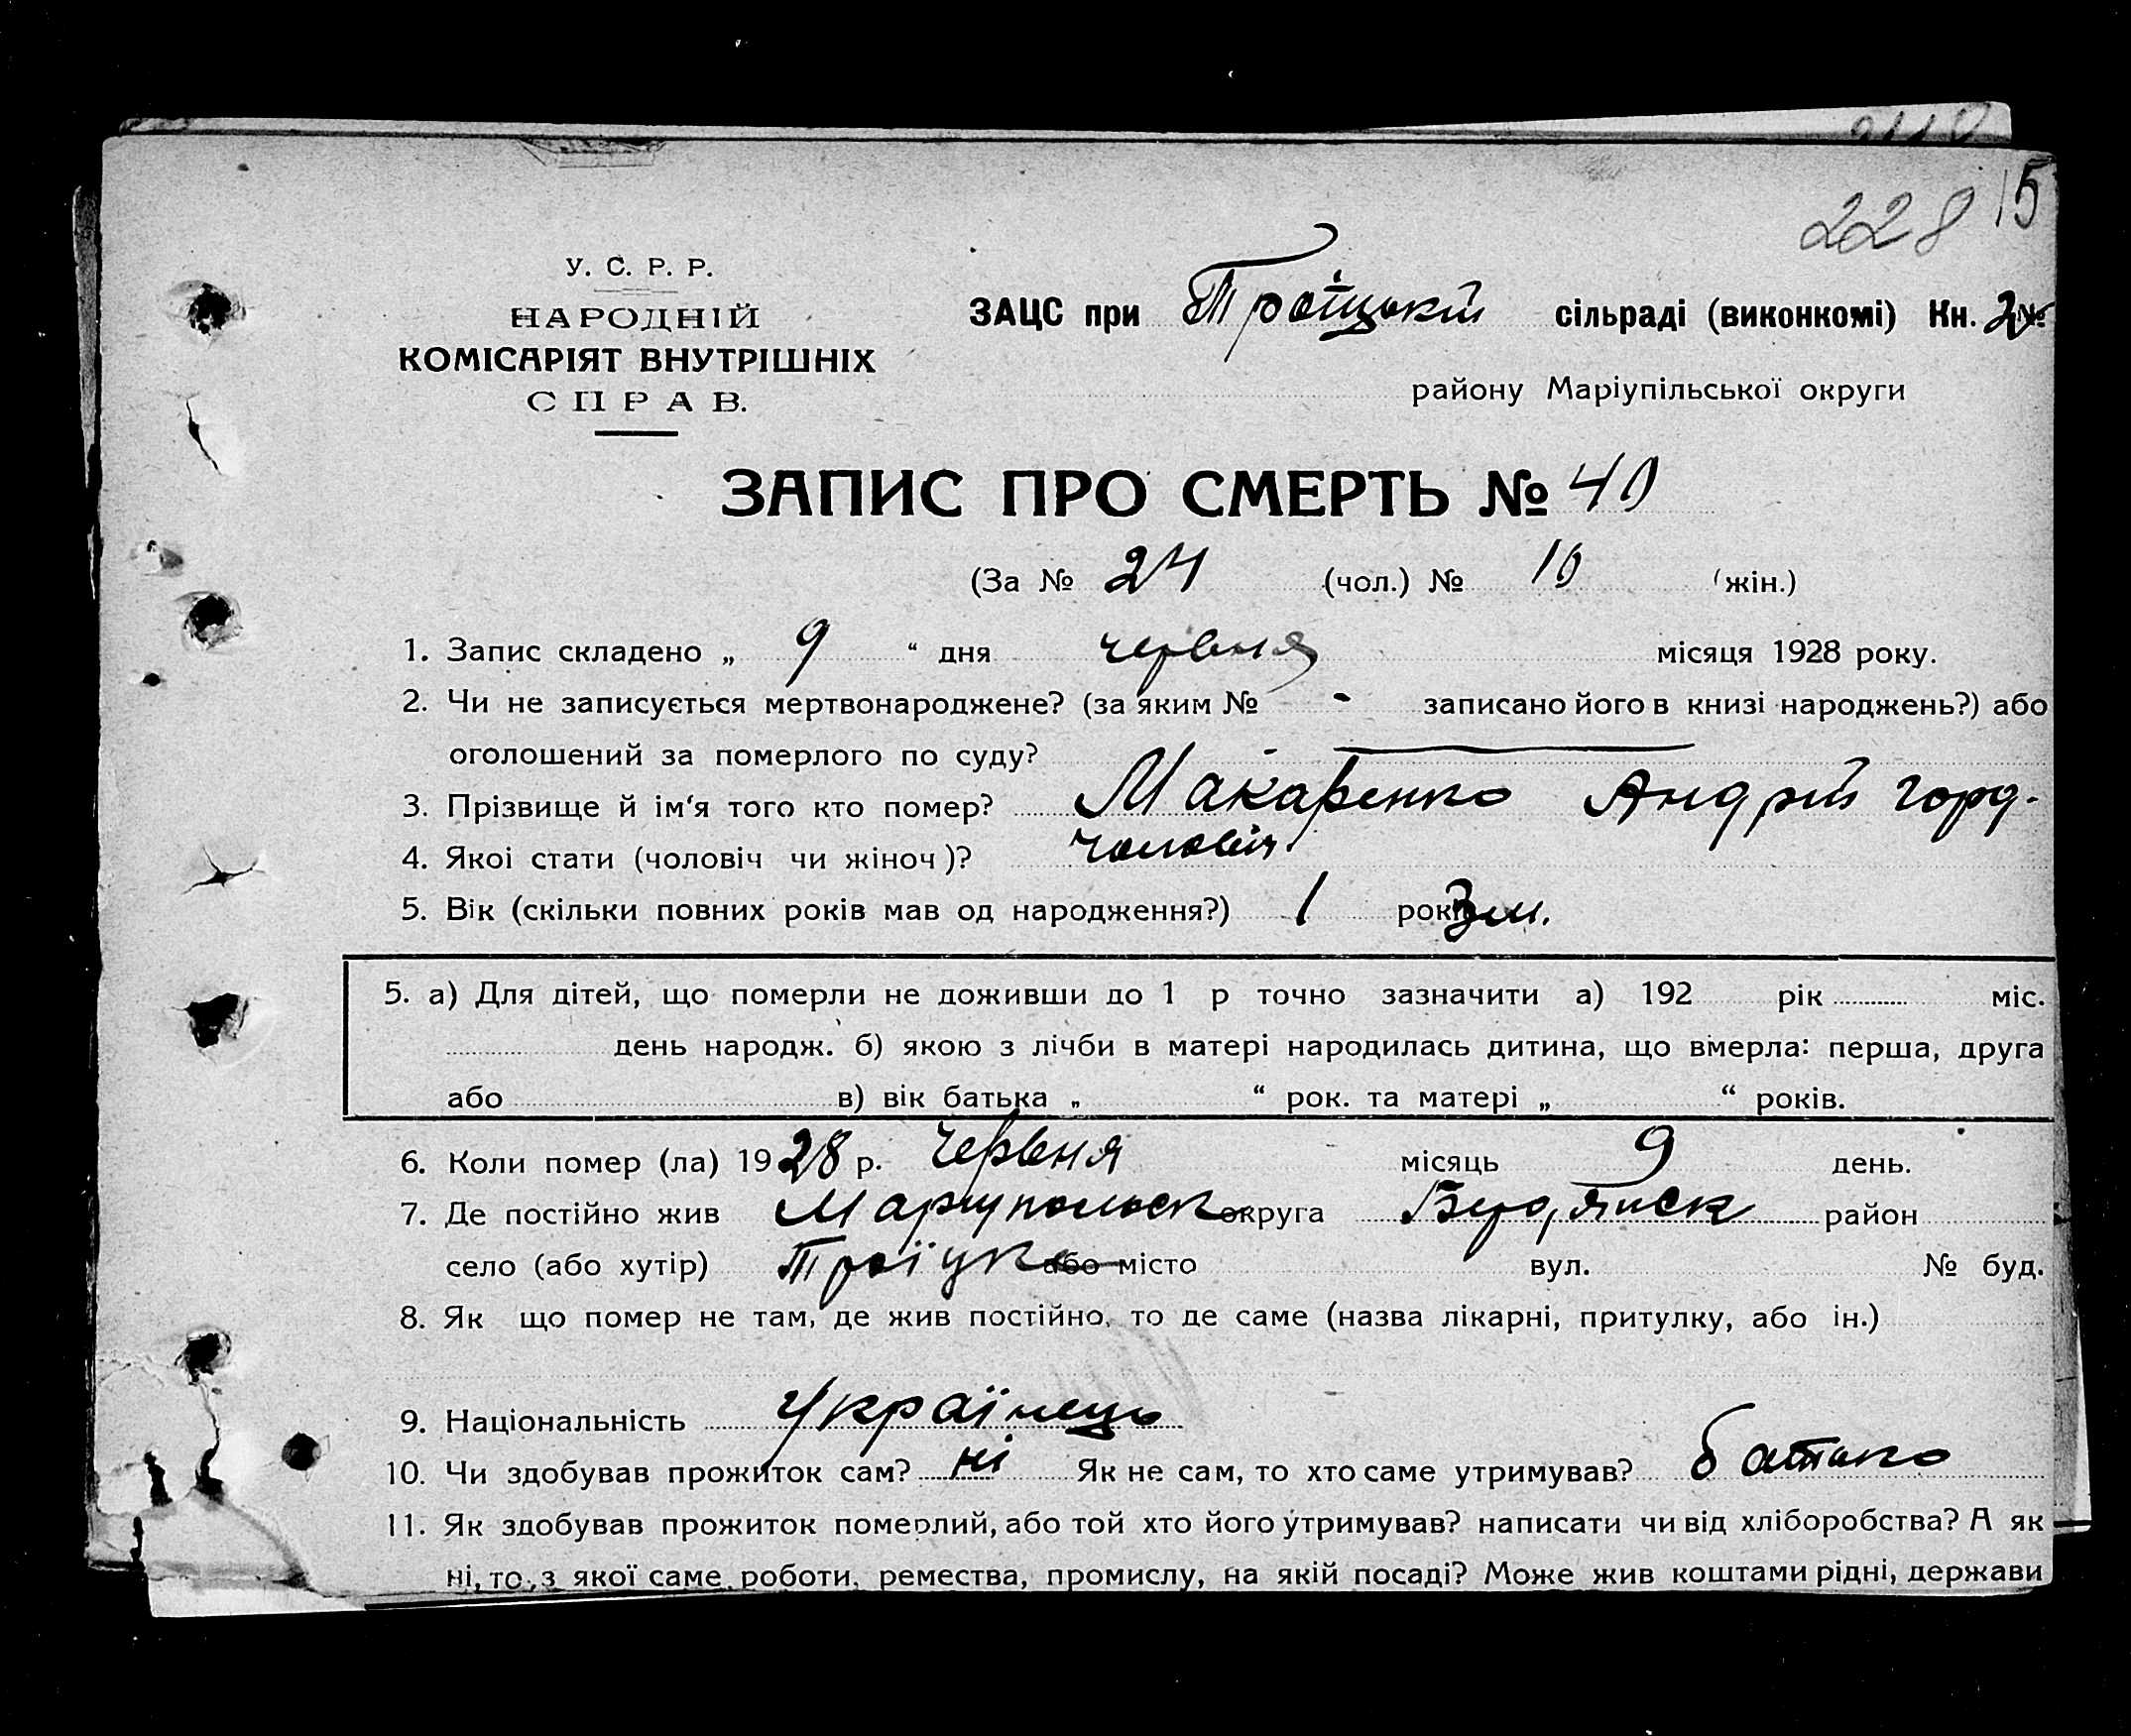 228 15
У. С. Р. Р.
НАРОДНІЙ
КОМІСАРІЯТ ВНУТРІШНІХ
СПРАВ.
ЗАЦС при Троїцькій сільраді (виконкомі) Кн. 2
району Маріупільської округи
ЗАПИС ПРО СМЕРТЬ № 40
(За № 24 (чол.) № 16 (жін.)
1. Запис складено „ 9 “ дня червня місяця 1928 року.
2. Чи не записується мертвонароджене? (за яким № - записано його в книзі народжень?) або
оголошений за померлого по суду?
3. Прізвище й ім'я того кто помер? Макаренко Андрій Горд.
4. Якоі стати (чоловіч чи жіноч)? чоловіч.
5. Вік (скільки повних років мав од народження?) 1 рок 3 м.
5. а) Для дітей, що померли не доживши до 1 р точно зазначити а) 192 рік міс.
день народж. б) якою з лічби в матері народилась дитина, що вмерла: перша, друга
або в) вік батька „ “ рок. та матері „ “ років.
6. Коли помер (ла) 1928 р. Червня місяць 9 день.
7. Де постійно жив Маріупольськ округа район
село (або хутір) Троїцьке або місто вул. № буд.
8. Як що помер не там, де жив постійно, то де саме (назва лікарні, притулку, або ін.)
9. Національність Українець
10. Чи здобував прожиток сам? ні Як не сам, то хто саме утримував? батько
11. Як здобував прожиток померлий, або той хто його утримував? написати чи від хліборобства? А як
ні, то з якої саме роботи, ремества, промислу, на якій посаді? Може жив коштами рідні, держави